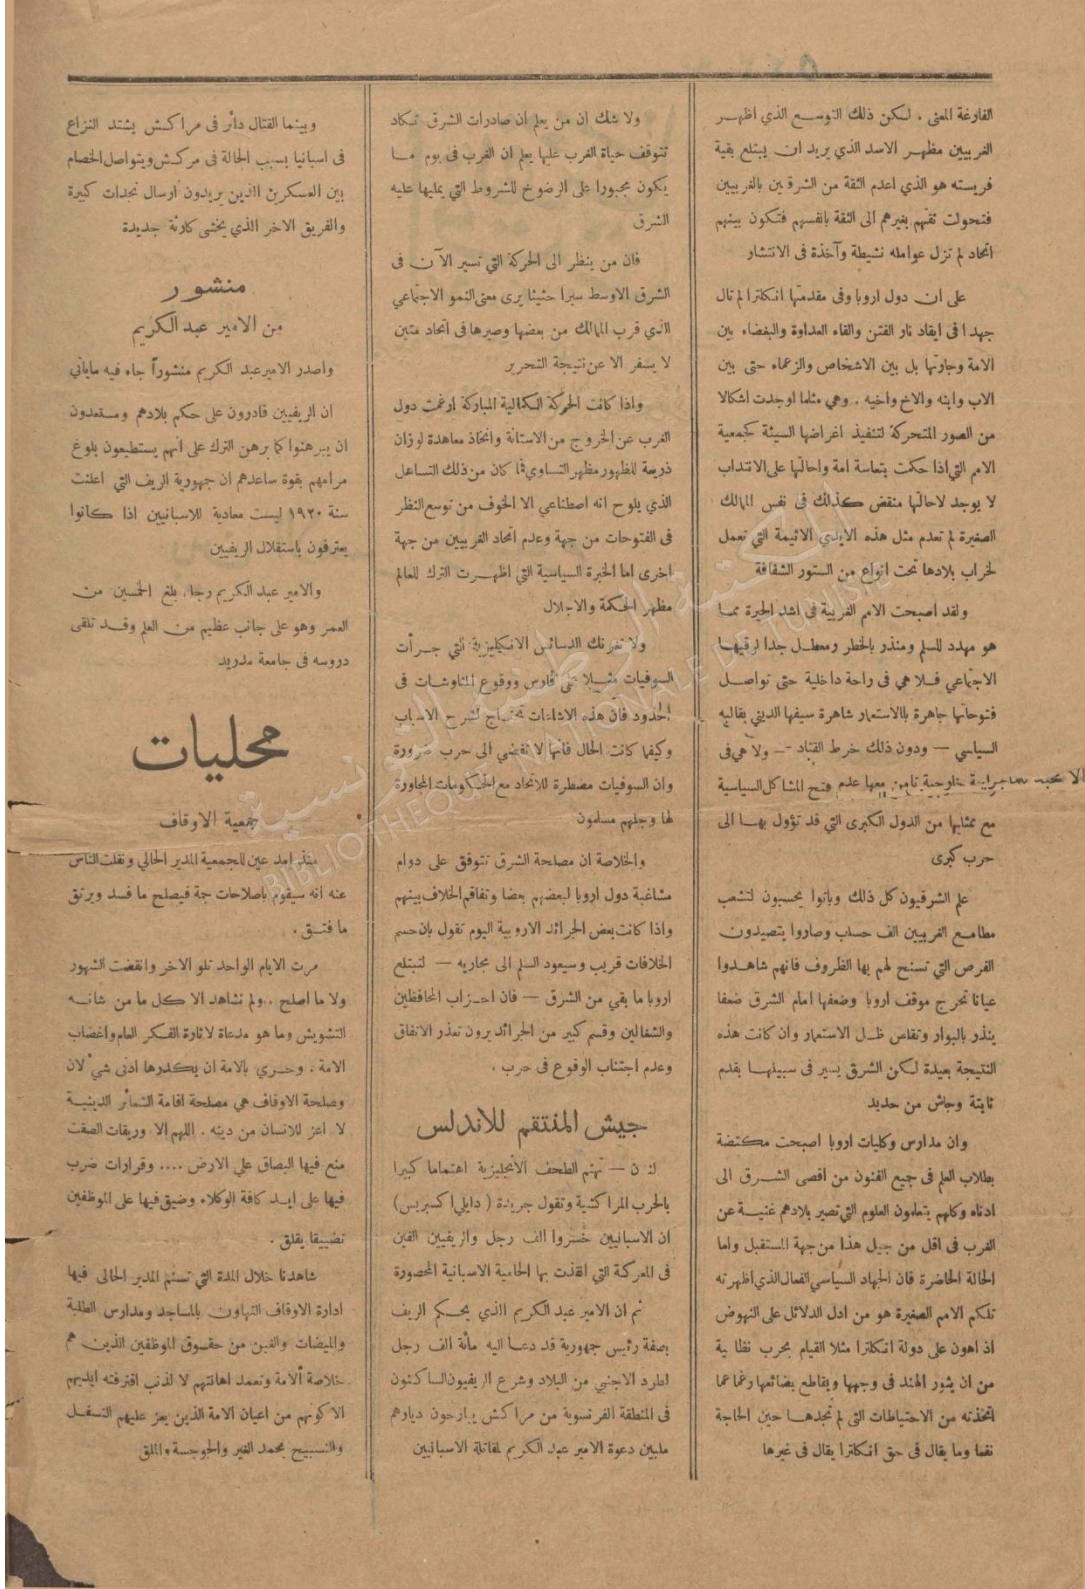 الفارغة المعنى . لكن ذلك التوسع الذي اظهر
الغربيين مظهر الاسد الذي يريد ان يبتلع بقية
فريسته هو الذي اعدم الثقة من الشرقيين بالغربيين
فتحولت ثقتهم بغيرهم الى الثقة بانفسهم فتكون بينهم
اتحاد لم تزل عوامله نشيطة وآخذة فى الانتشار
على ان دول اروبا وفى مقدمتها انكلترا لم تال
جهدا فى ايقاد نار الفتن والقاء العداوة والبغضاء بين
الامة وجارتها بل بين الاشخاص والزعماء حتى بين
الاب وابنه والاخ واخيه . وهي مثلما اوجدت اشكالا
من الصور المتحركة لتنفيذ اغراضها السيئة كجمعية
الامم التي اذا حكمت بتعاسة امة واحالتها على الانتداب
لا يوجد لاحالتها منقض كذلك فى نفس الممالك
الصغيرة لم تعدم مثل هذه الايدي الاثيمة التي تعمل
لخراب بلادها تحت انواع من الستور الشفافة
ولقد اصبحت الامم الغربية فى اشد الحيرة مما
هو مهدد للسلم ومنذر بالخطر ومعطل جدا لرقيها
الاجتماعي فلا هي فى راحة داخلية حتى تواصل
فتوحاتها جاهرة بالاستعمار شاهرة سيفها الديني بقالبه
السياسي — ودون ذلك خرط القتاد — ولا هي فى
خارجية تامن معها عدم فتح المشاكل السياسية
مع مثلها من الدول الكبرى التي قد تؤول بها الى
حرب كبرى
علم الشرقيون كل ذلك وباتوا يحسبون لتشعب
مطامع الغربيين الف حساب وصاروا يتصيدون
الفرص التي تسنح لهم بها الظروف فانهم شاهدوا
عيانا تحرج موقف اروبا وضعفها امام الشرق ضعفا
ينذر بالبوار وتقلص ظل الاستعمار وان كانت هذه
النتيجة بعيدة لكن الشرق يسير فى سبيلها بقدم
ثابتة وجاش من حديد
وان مدارس وكليات اروبا اصبحت مكتضة
بطلاب العلم فى جميع الفنون من اقصى الشرق الى
ادناه وكلهم يتعلمون العلوم التي تصير بلادهم غنية عن
الغرب فى اقل من جيل هذا من جهة المستقبل واما
الحالة الحاضرة فان الجهاد السياسي الفعال الذي اظهرته
تلكم الامم الصغيرة هو من ادل الدلائل على النهوض
اذ اهون على دولة انكلترا مثلا القيام بحرب نظامية
من ان يثور الهند فى وجهها ويقاطع بضائعها رغما عما
اتخذته من الاحتياطات التي لم تجدها حين الحاجة
نفعا وما يقال فى حق انكلترا يقال فى غيرها
ولا شك ان من يعلم ان صادرات الشرق تكاد
تتوقف حياة الغرب عليها يعلم ان الغرب فى يوم ما
يكون مجبورا على الرضوخ للشروط التي يمليها عليه
الشرق
فان من ينظر الى الحركة التي تسير الآن فى
الشرق الاوسط سيرا حثيثا يرى معنى النمو الاجتماعي
الذي قرب الممالك من بعضها وصيرها فى اتحاد متين
لا يسفر الا عن نتيجة التحرير
واذا كانت الحركة الكمالية المباركة ارغمت دول
الغرب عن الخروج من الاستانة واتخاذ معاهدة لوزان
ذريعة للظهور مظهر التساوي فما كان من ذلك التساهل
الذي يلوح انه اصطناعي الا الخوف من توسع النظر
فى الفتوحات من جهة وعدم اتحاد الغربيين من جهة
اخرى اما الخبرة السياسية التي اظهرت الترك للعالم
مظهر الحكمة والاجلال
ولا تغرنك الدسائس الانكليزية التي جرأت
السوفيات مثلا على فارس ووقوع المناوشات فى
الحدود فان هذه الاشاعات تحتاج لشرح الاسباب
وكيفما كانت الحال فانها لا تفضي الى حرب ضرورة
وان السوفيات مضطرة للاتحاد مع الحكومات المجاورة
لها وجلهم مسلمون
والخلاصة ان مصلحة الشرق تتوقف على دوام
مشاغبة دول اروبا لبعضهم بعضا وتفاقم الخلاف بينهم
واذا كانت بعض الجرائد الاروبية اليوم تقول بان حسم
الخلافات قريب وسيعود السلم الى مجاريه — لتبتلع
اروبا ما بقي من الشرق — فان احزاب المحافظين
والشغالين وقسم كبير من الجرائد يرون تعذر الاتفاق
وعدم اجتناب الوقوع فى حرب .
جيش المنتقم للاندلس
لندن — تهتم الصحف الانجليزية اهتماما كبيرا
بالحرب المراكشية وتقول جريدة ( دايلي اكسبريس)
ان الاسبانيين خسروا الف رجل والريفيين الفين
فى المعركة التي انقذت بها الحامية الاسبانية المحصورة
ثم ان الامير عبد الكريم الذي يحكم الريف
بصفة رئيس جمهورية قد دعا اليه مائة الف رجل
لطرد الاجنبي من البلاد وشرع الريفيون الساكنون
فى المنطقة الفرنسوية من مراكش يبارحون ديارهم
ملبين دعوة الامير عبد الكريم لمقاتلة الاسبانيين
وبينما القتال دائر فى مراكش يشتد النزاع
فى اسبانيا بسبب الحالة فى مركش ويتواصل الخصام
بين العسكرين الذين يريدون ارسال نجدات كبيرة
والفريق الاخر الذي يخشى كارثة جديدة
منشور
من الامير عبد الكريم
واصدر الامير عبد الكريم منشوراً جاء فيه ماياتي
ان الريفيين قادرون على حكم بلادهم ومستعدون
ان يبرهنوا كما برهن الترك على انهم يستطيعون بلوغ
مرامهم بقوة ساعدهم ان جمهورية الريف التي اعلنت
سنة ١٩٢٠ ليست معادية للاسبانيين اذا كانوا
يعترفون باستقلال الريفيين
والامير عبد الكريم رجل بلغ الخمسين من
العمر وهو على جانب عظيم من العلم وقد تلقى
دروسه فى جامعة مدريد
محليات
جمعية الاوقاف
منذ امد عين للجمعية المدير الحالي ونقلت الناس
عنه انه سيقوم باصلاحات جمة فيصلح ما فسد ويرتق
ما فتق .
مرت الايام الواحد تلو الاخر وانقضت الشهور
ولا ما اصلح .. ولم نشاهد الا كل ما من شانه
التشويش وما هو مدعاة لاثارة الفكر العام واغضاب
الامة . وحري بالامة ان يكدرها ادنى شيء لان
مصلحة الاوقاف هي مصلحة اقامة الشعائر الدينية
لا اعز للانسان من دينه . اللهم الا وريقات الصقت
منع فيها البصاق علي الارض .... وقرارات ضرب
فيها على ايد كافة الوكلاء وضيق فيها على الموظفين
تضييقا يقلق .
شاهدنا خلال المدة التي تسنم المدير الحالى فيها
ادارة الاوقاف التهاون بالمساجد ومدارس الطلبة
والميضات والغبن من حقوق الموظفين الذين هم
خلاصة الامة وتعمد اهانتهم لا لذنب اقترفته ايديهم
الا كونهم من اعيان الامة الذين يعز عليهم التسفل
والتسبيح بحمد الغير والجوسسة والملق
المكتبة الوطنية التونسية
BIBLIOTHEQUE NATIONALE DE TUNISIE